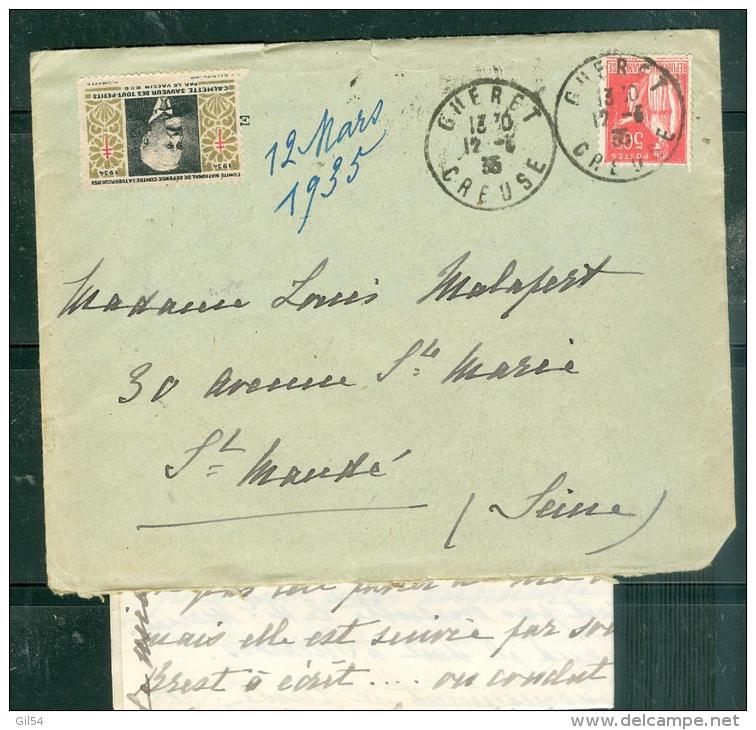 COMITÉ NATIONAL DE DÉFENSE CONTRE LA TUBERCULOSE
1934 1934
CALMETTE SAUVEUR DES TOUT-PETITS
PAR LE VACCIN BCG
12 Mars
1935
GUERET
13 30
12 - 3
35
CREUSE
GUERET
13 30
12 - 3
35
CREUSE
REPUBLIQUE FRANCAISE
POSTES
50c
Madame Louis Malapert
30 avenue Ste Marie
St Mandé
(Seine)
mais elle est suivie par son
Brest a écrit .... on conduit
Gil54
© delcampe.net